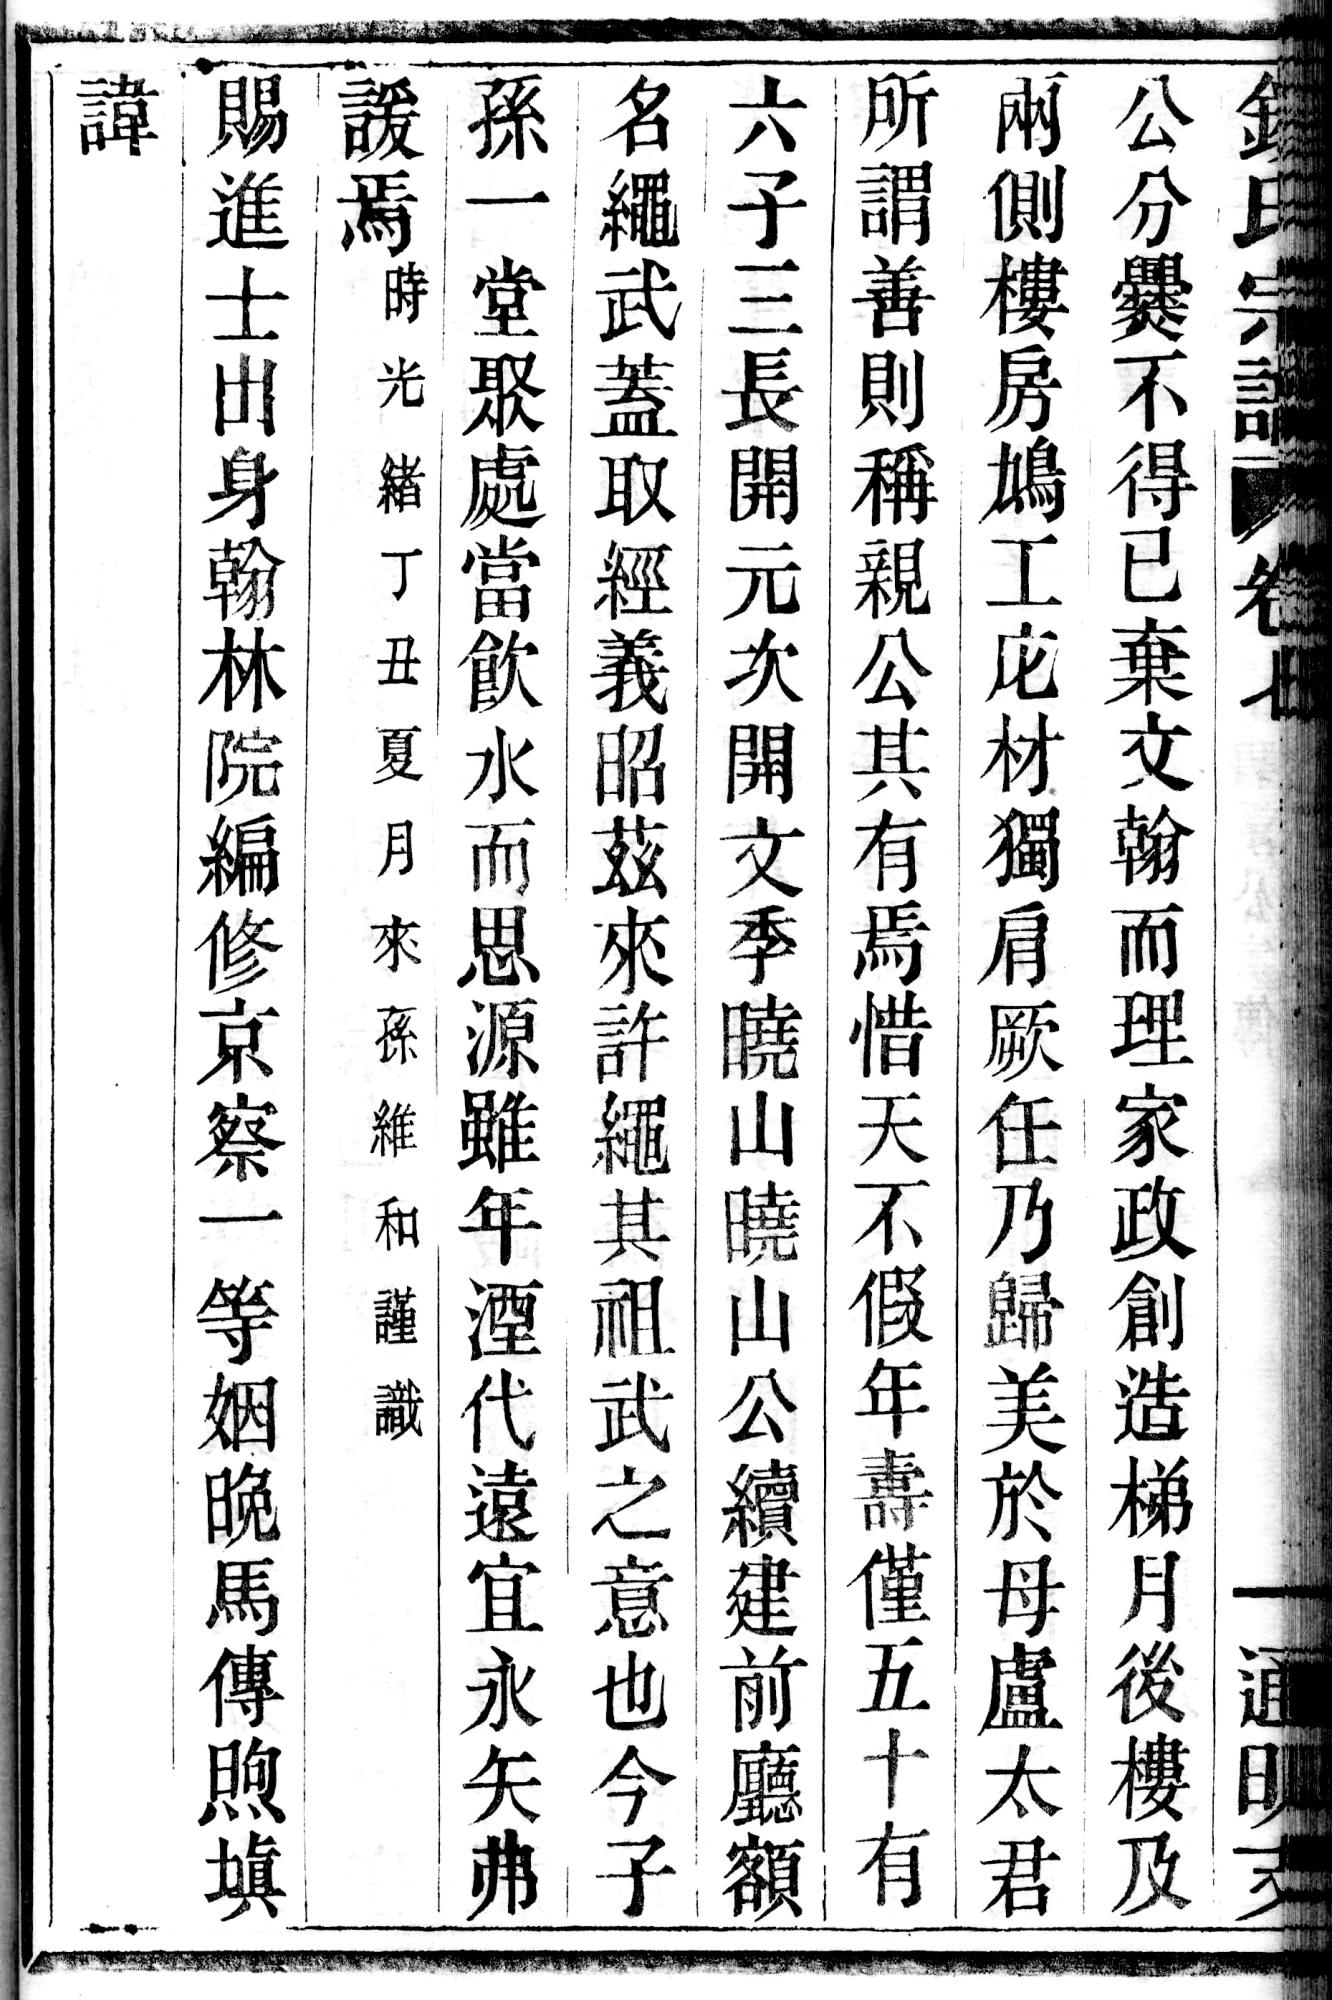 氏宗譜 卷七 一 通明支
公分爨不得已棄文翰而理家政創造梯月後樓及
兩側樓房鳩工庀材獨肩厥任乃歸美於母盧太君
所謂善則稱親公其有焉惜天不假年壽僅五十有
六子三長開元次開文季曉山曉山公續建前廳額
名繩武蓋取經義昭茲來許繩其祖武之意也今子
孫一堂聚處當飲水而思源雖年湮代遠宜永矢弗
諼焉時光緒丁丑夏月來孫維和謹識
賜進士出身翰林院編修京察一等姻晚馬傳煦填
諱